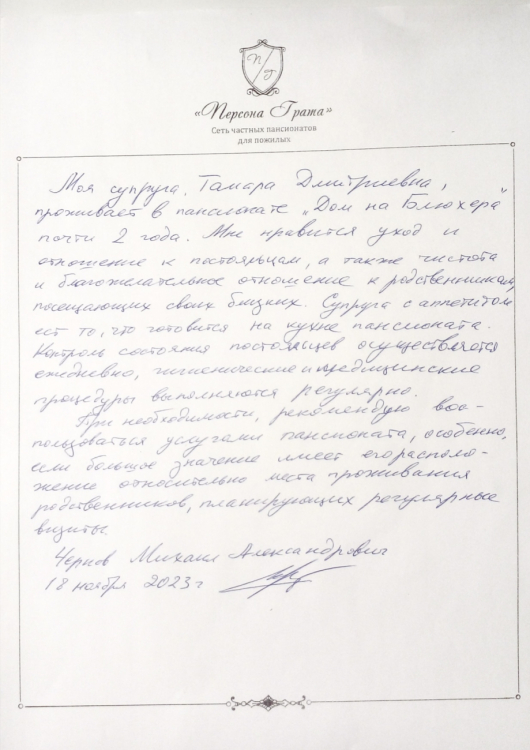 П
Г
«Персона Грата»
Сеть частных пансионатов
для пожилых
Моя супруга, Тамара Дмитриевна,
проживает в пансионате „Дом на Блюхера"
почти 2 года. Мне нравится уход и
отношение к постояльцам, а также чистота
и благожелательное отношение к родственникам,
посещающих своих близких. Супруга с аппетитом
ест то, что готовится на кухне пансионата.
Контроль состояния постояльцев осуществляется
ежедневно, гигиенические и медицинские
процедуры выполняются регулярно.
При необходимости, рекомендую вос-
пользоваться услугами пансионата, особенно,
если большое значение имеет его располо-
жение относительно места проживания
родственников, планирующих регулярные
визиты.
Чернов Михаил Александрович
18 ноября 2023 г